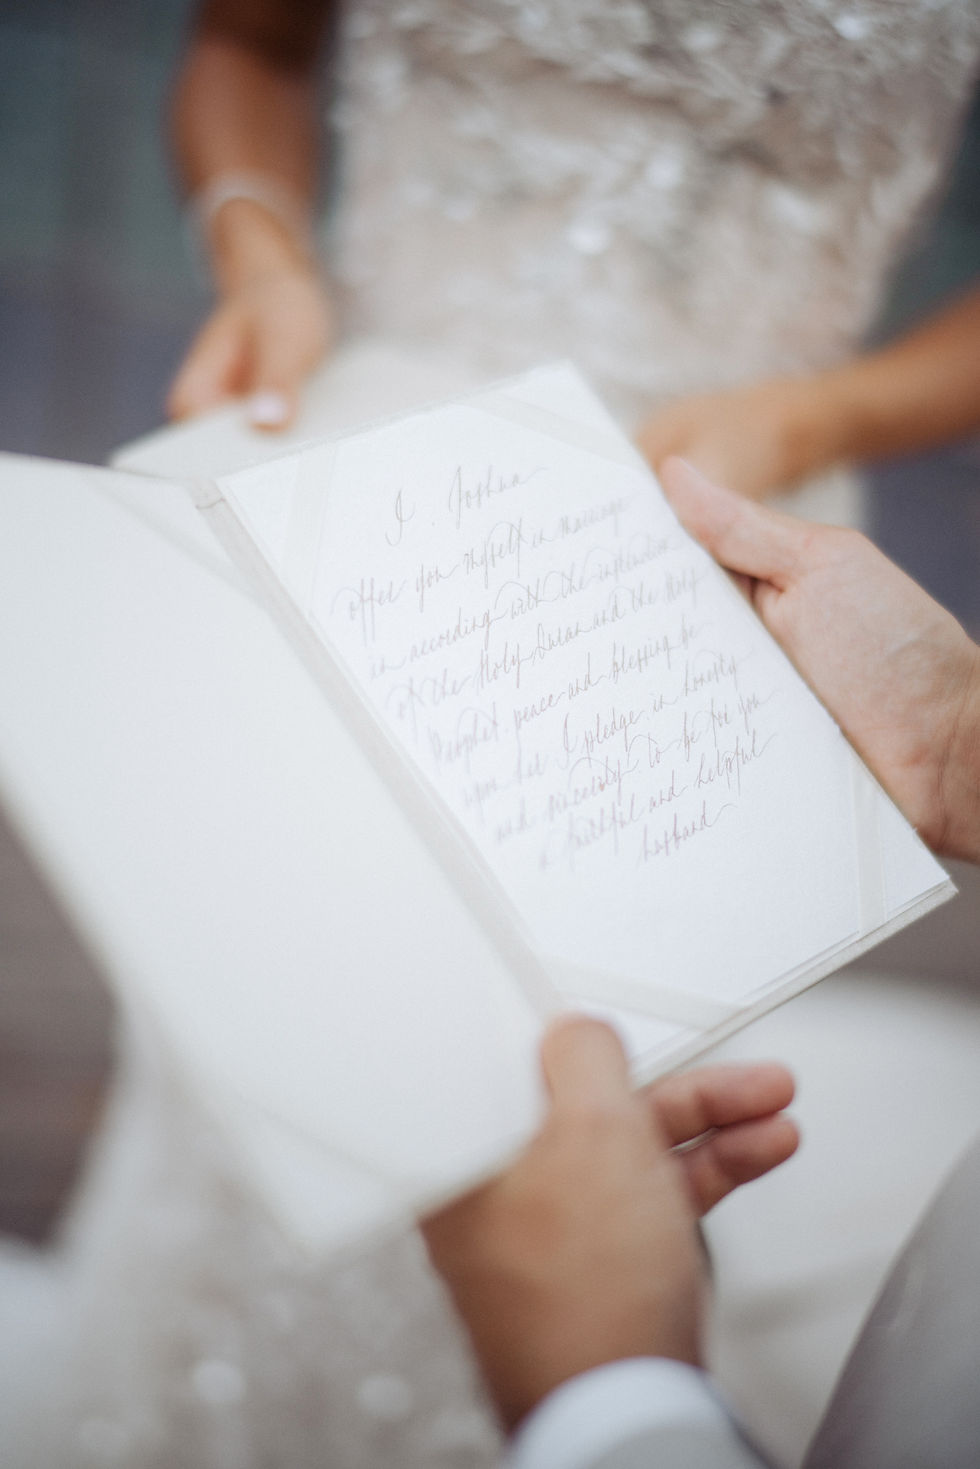 I, Joshua
offer you myself in marriage
in according with the instruction
of the Holy Quran and the Holy
Prophet, peace and blessing be
upon her. I pledge, in honesty
and sincerity, to be for you
a faithful and helpful
husband